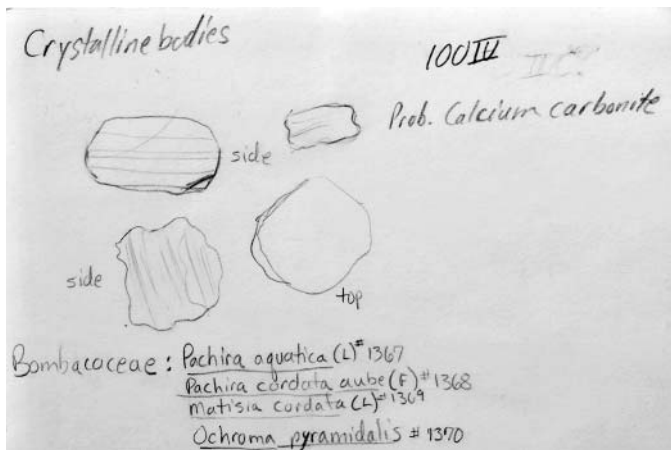 Crystalline bodies
100IV
Prob. Calcium carbonite
side
side
top
Bombacoceae: Pachira aquatica (L)# 1367
Pachira cordata aube (F)# 1368
Matisia cordata (L)# 1369
Ochroma pyramidalis # 1370